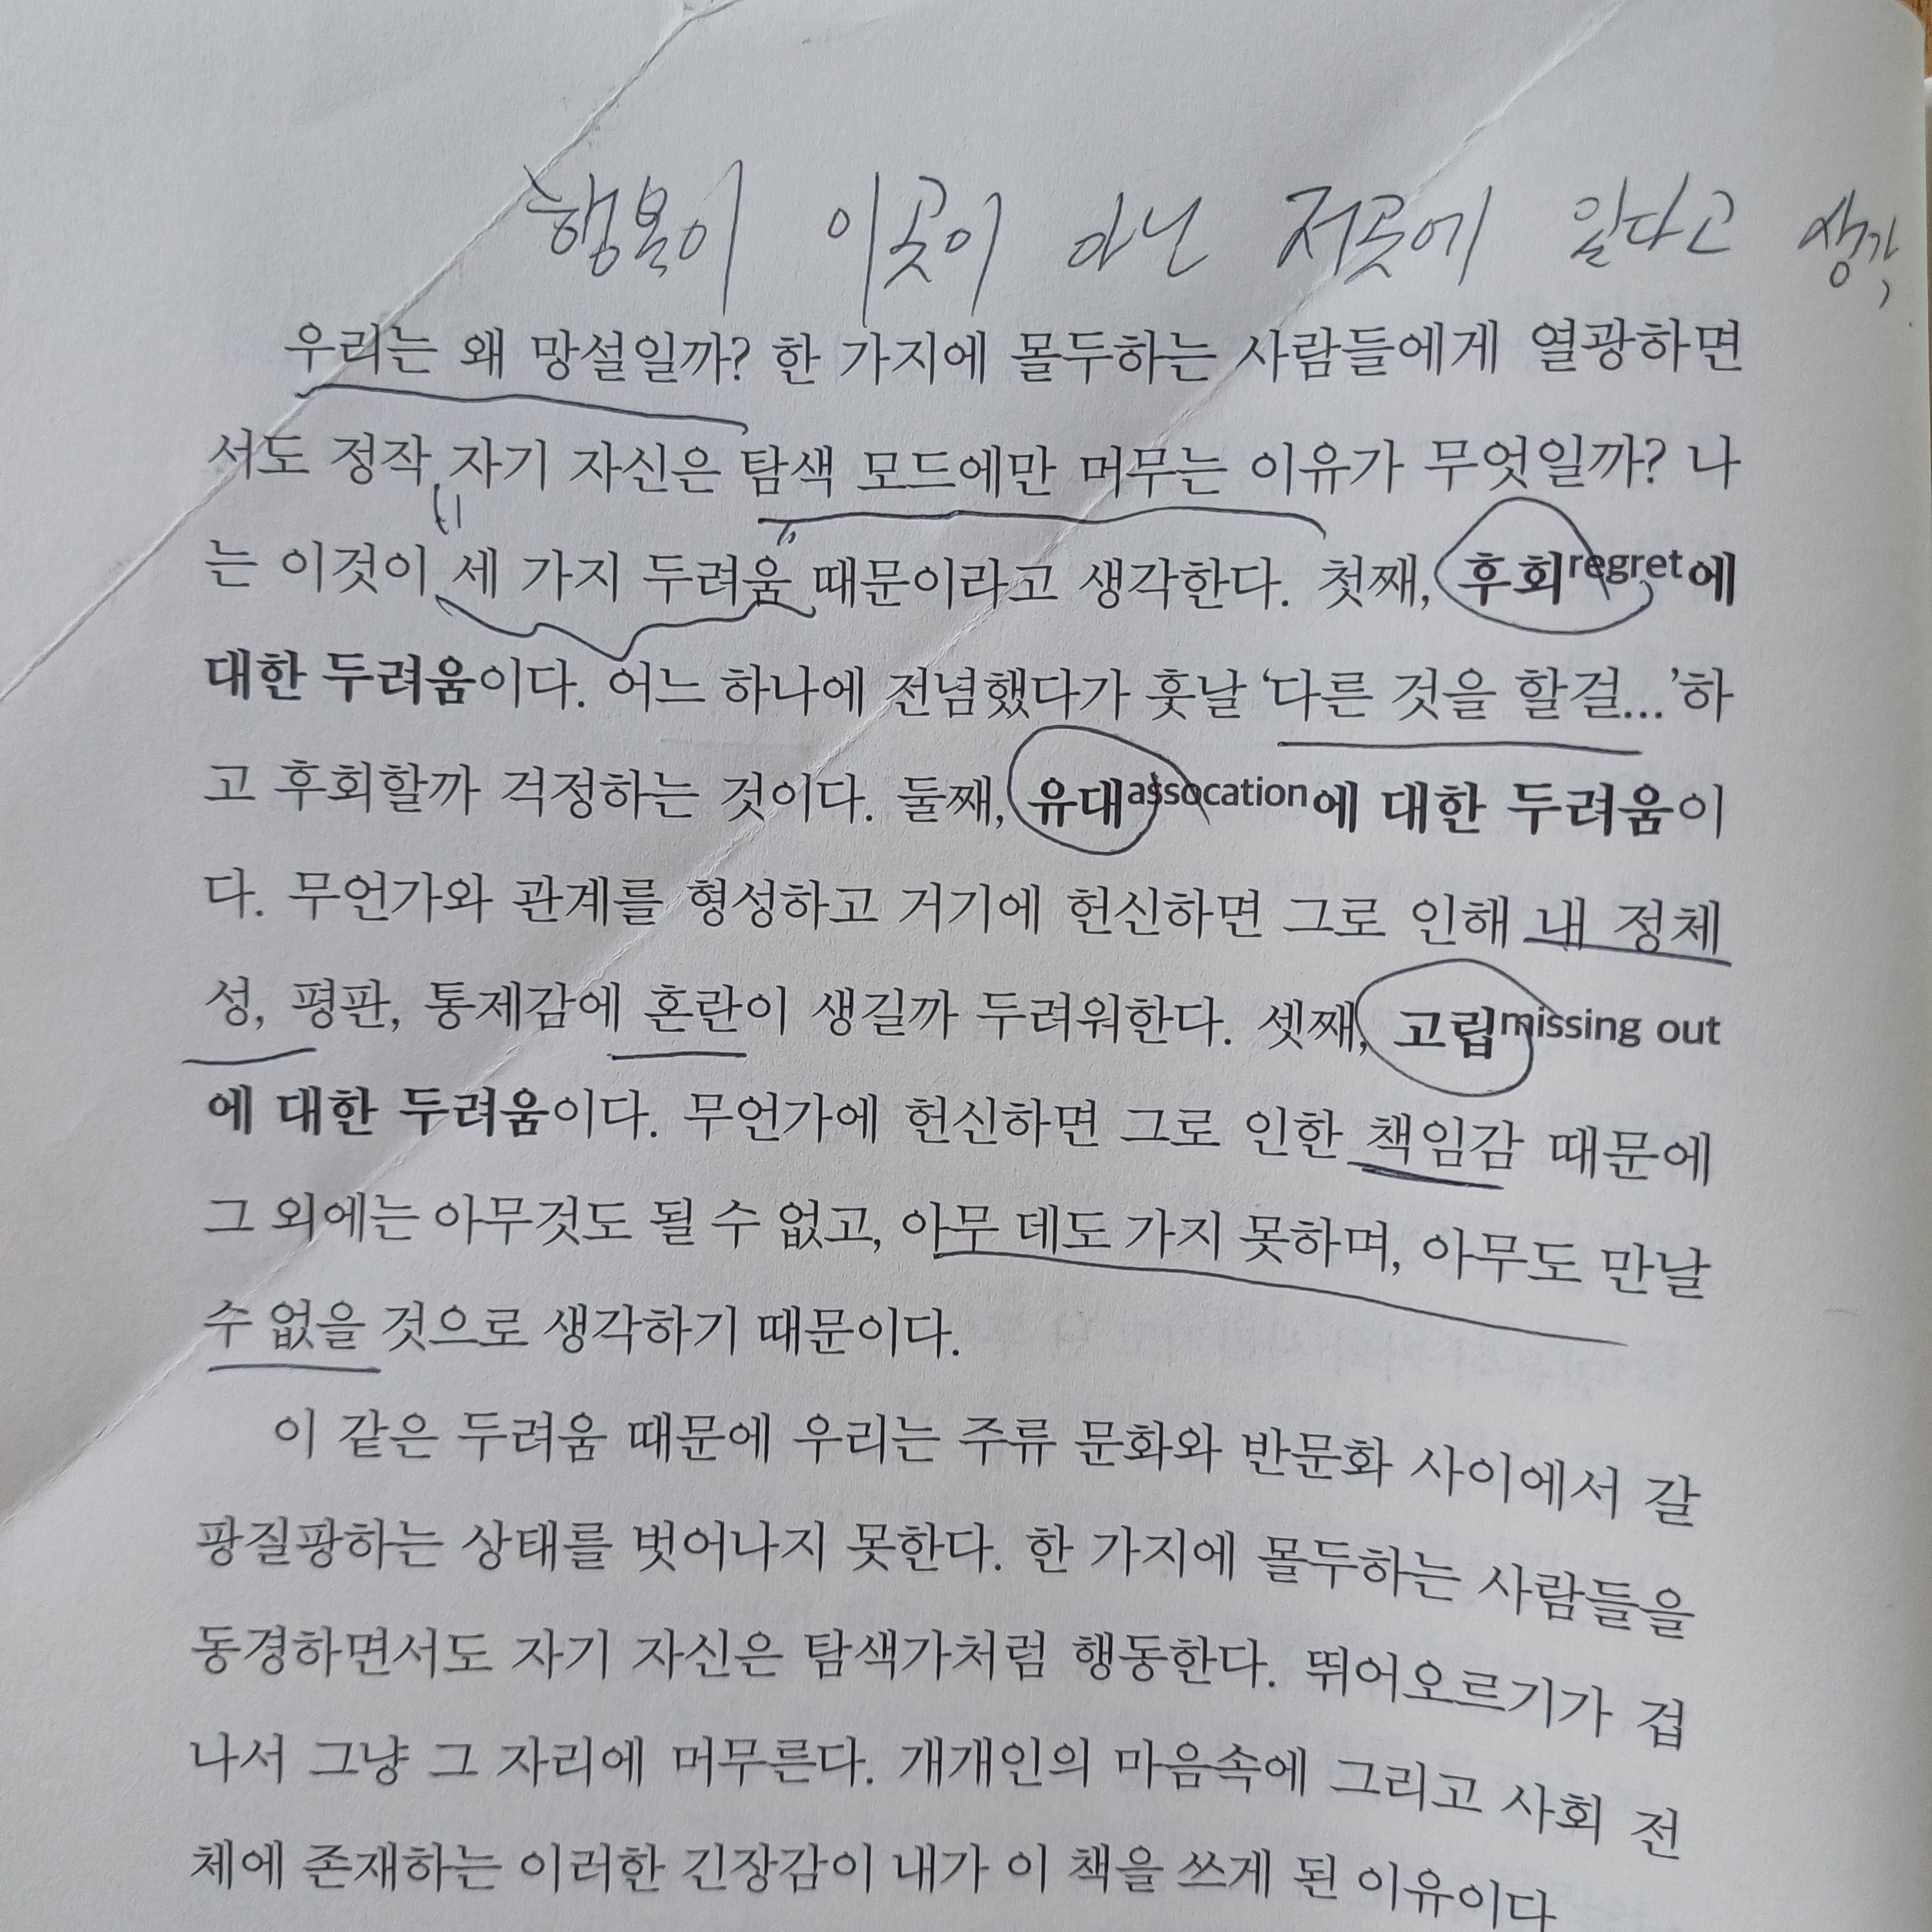 행복이 이곳이 아닌 저곳에 있다고 생각
우리는 왜 망설일까? 한 가지에 몰두하는 사람들에게 열광하면
서도 정작 자기 자신은 탐색 모드에만 머무는 이유가 무엇일까? 나
는 이것이 세 가지 두려움 때문이라고 생각한다. 첫째, 후회regret에
대한 두려움이다. 어느 하나에 전념했다가 훗날 ‘다른 것을 할걸…’하
고 후회할까 걱정하는 것이다. 둘째, 유대assocation에 대한 두려움이
다. 무언가와 관계를 형성하고 거기에 헌신하면 그로 인해 내 정체
성, 평판, 통제감에 혼란이 생길까 두려워한다. 셋째, 고립missing out
에 대한 두려움이다. 무언가에 헌신하면 그로 인한 책임감 때문에
그 외에는 아무것도 될 수 없고, 아무 데도 가지 못하며, 아무도 만날
수 없을 것으로 생각하기 때문이다.
이 같은 두려움 때문에 우리는 주류 문화와 반문화 사이에서 갈
팡질팡하는 상태를 벗어나지 못한다. 한 가지에 몰두하는 사람들을
동경하면서도 자기 자신은 탐색가처럼 행동한다. 뛰어오르기가 겁
나서 그냥 그 자리에 머무른다. 개개인의 마음속에 그리고 사회 전
체에 존재하는 이러한 긴장감이 내가 이 책을 쓰게 된 이유이다